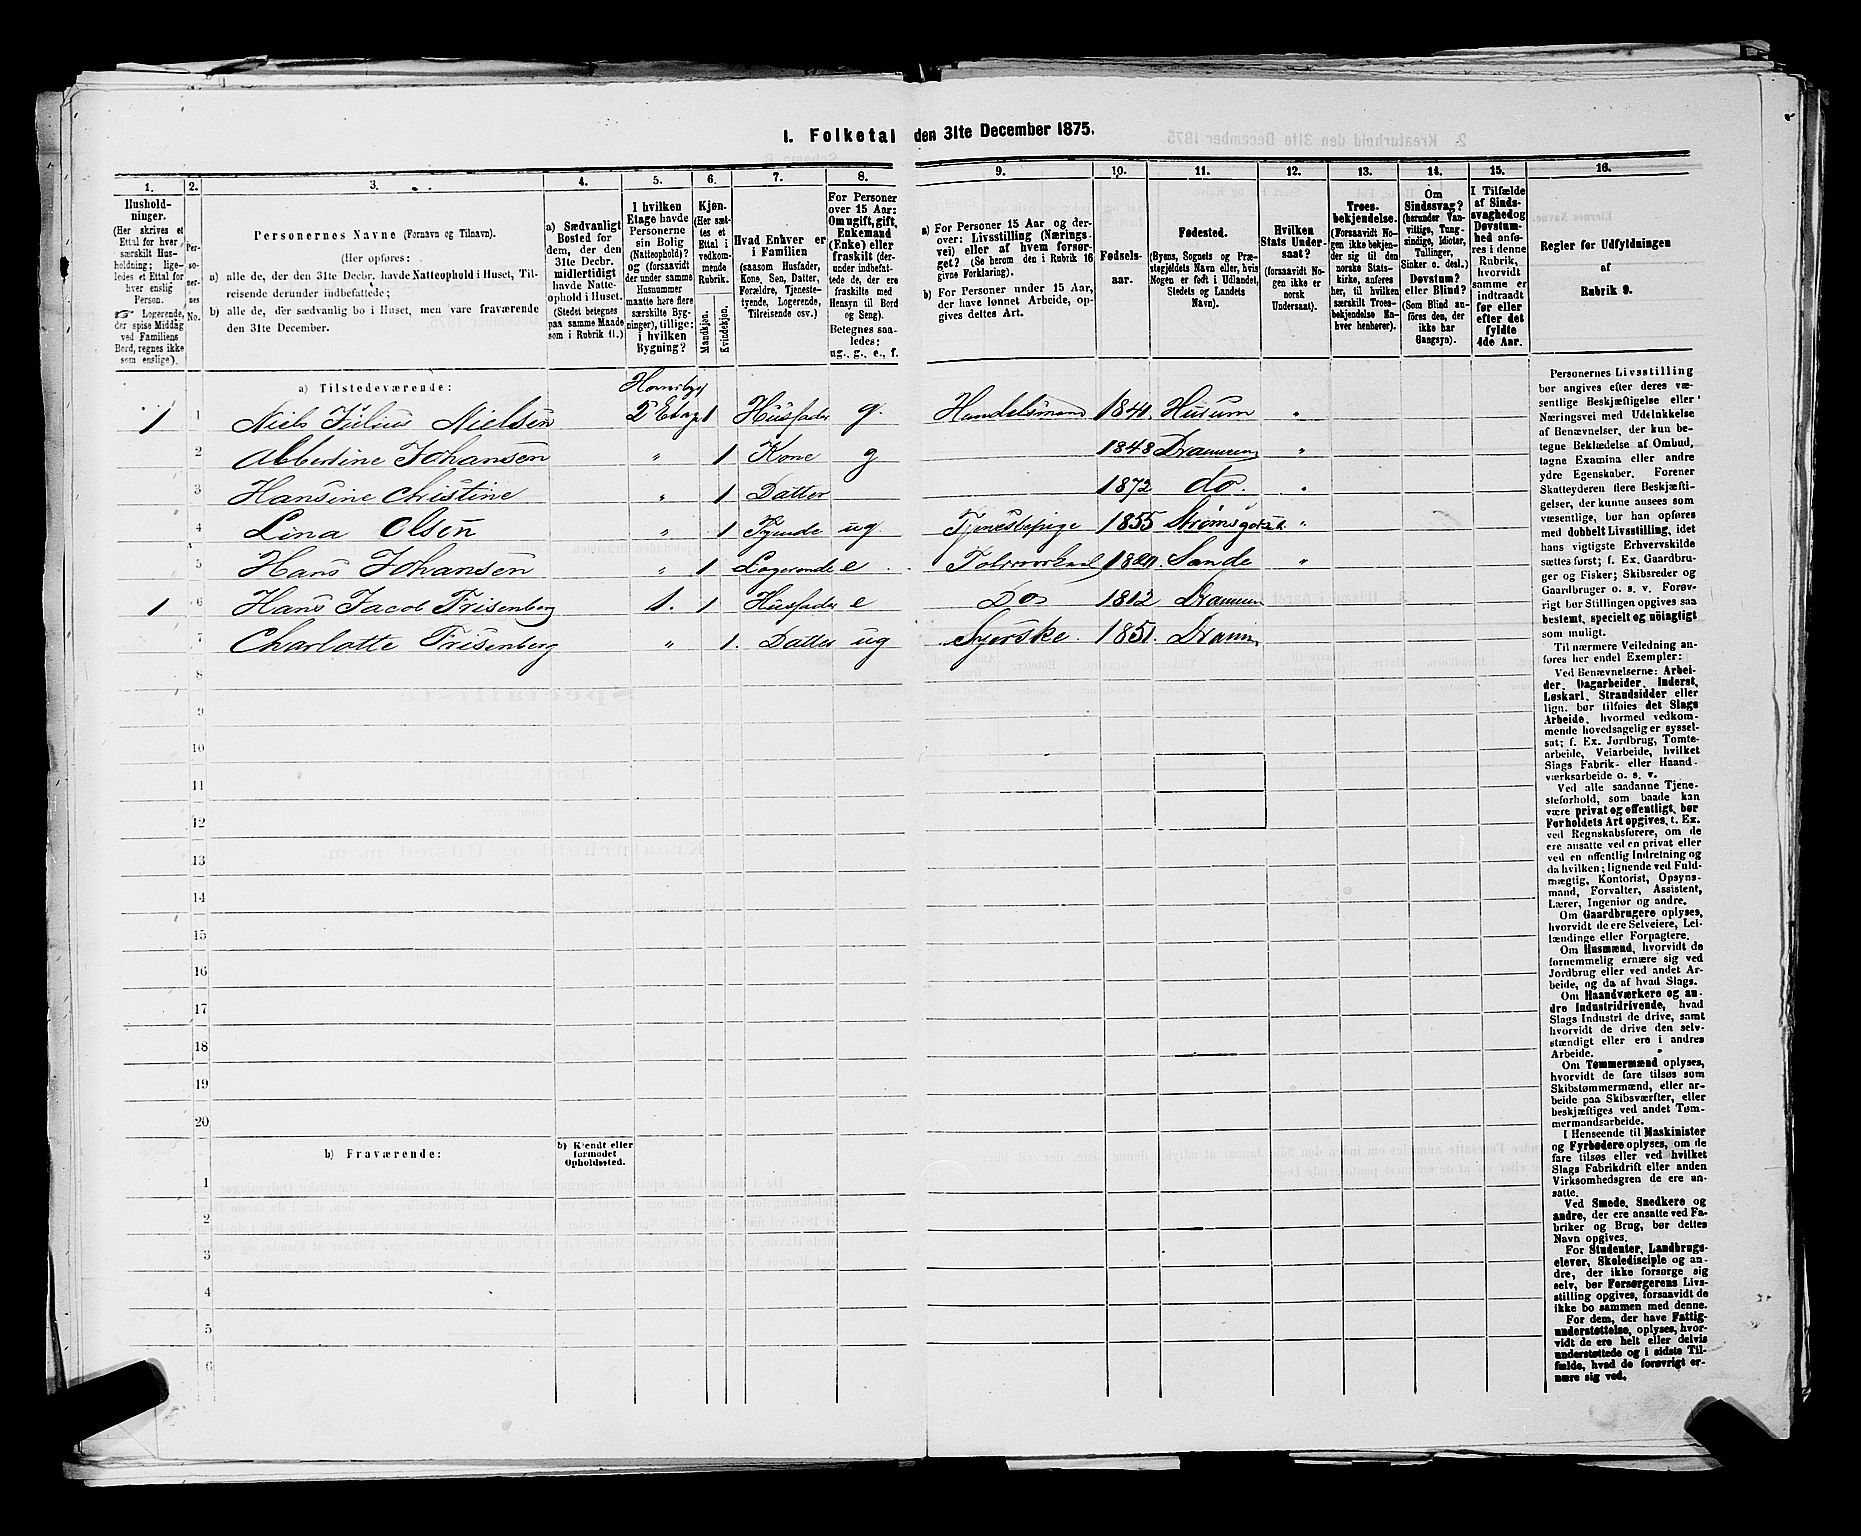 1. Folketal den 31te December 1875.
1. 2. 3. 4. 5. 6. 7. 8. 9. 10. 11. 12. 13. 14. 15. 16.
Hushold-
ninger.
(Her skrives et
Ettal for hver
særskilt Hus-
holdning; lige-
ledes et Ettal for
hver enslig
Person.
☞ Logerende,
der spise Middag
ved Familiens
Bord, regnes ikke
som enslige).
Per-
so-
ner-
nes
No.
Personernes Navne (Fornavn og Tilnavn).
(Her opføres:
a) alle de, der den 31te Decbr. havde Natteophold i Huset, Til-
reisende derunder indbefattede;
b) alle de, der sædvanlig bo i Huset, men vare fraværende
den 31te December.
a) Sædvanligt
Bosted for
dem, der den
31te Decbr.
midlertidigt
havde Natte-
ophold i Huset.
(Stedet betegnes
paa samme Maade
som i Rubrik 11.)
I hvilken
Etage havde
Personerne
sin Bolig
(Natteophold)?
og (forsaavidt
der under samme
Husnummer
maatte høre flere
særskilte Byg-
ninger), tillige:
i hvilken
Bygning?
Kjøn.
(Her sæt-
tes et
Ettal i
vedkom-
mende
Rubrik.
Mandkjøn.
Kvindekjøn.
Hvad Enhver er
i Familien
(saasom Husfader,
Kone, Søn, Datter,
Forældre, Tjeneste-
tyende, Logerende,
Tilreisende osv.)
For Personer
over 15 Aar:
Om ugift, gift,
Enkemand
(Enke) eller
fraskilt (der-
under indbefat-
tede de, der ere
fraskilte med
Hensyn til Bord
og Seng).
Betegnes saa-
ledes:
ug., g., e., f.
a) For Personer 15 Aar og der-
over: Livsstilling (Nærings-
vei) eller af hvem forsør-
get? (Se herom den i Rubrik 16
givne Forklaring).
b) For Personer under 15 Aar,
der have lønnet Arbeide, op-
gives dettes Art.
Fødsels-
aar.
Fødested.
(Byens, Sognets og Præ-
stegjeldets Navn eller, hvis
Nogen er født i Udlandet,
Stedets og Landets
Navn).
Hvilken
Stats Under-
saat?
(forsaavidt No-
gen ikke er
norsk
Undersaat).
Troes-
bekjendelse.
(Forsaavidt No-
gen ikke bekjen-
der sig til den
norske Stats-
kirke, anføres
her, til hvilken
særskilt Troes-
bekjendelse En-
hver henhører).
Om
Sindssvag?
(herunder Van-
vittige, Tung-
sindige, Idioter,
Tullinger,
Sinker o. desl.)
Døvstum?
eller Blind?
(Som Blind an-
føres den, der
ikke har
Gangsyn).
I Tilfælde
af Sinds-
svaghed og
Døvstum-
hed anfø-
res i denne
Rubrik,
hvorvidt
samme er
indtraadt
før eller
efter det
fyldte
4de Aar.
Regler for Udfyldningen
af
Rubrik 9.
a) Tilstedeværende:
1 1 Niels Julius Nielsen 2 Etage 1 Husfader g Handelsmand 1840 Husum "
2 Abbertine Johansen " 1 Kone g 1848 Drammen "
3 Hansine Christine " 1 Datter 1872 do. "
4 Lina Olsen " 1 Tyende ug Tjenestepige 1855 "
5 Hans Johansen " 1 Logerende e Sande "
1 6 Hans Jacob Frisenberg 1. 1 Husfader e Do 1812 Drammen
7 Charlotte Frisenberg " 1. Datter ug Syerske 1851
8
9
10
11
12
13
14
15
16
17
18
19
20
b) Fraværende:
b) Kjendt eller
formodet
Opholdssted.
1
2
3
4
5
6
Personernes Livsstilling
bør angives efter deres væ-
sentlige Beskjæftigelse eller
Næringsvei med Udelukkelse
af Benævnelser, der kun be-
tegne Beklædelse af Ombud,
tagne Examina eller andre
ydre Egenskaber. Forener
Skatteyderen flere Beskjæfti-
gelser, der kunne ansees som
væsentlige, bør han opføres
med dobbelt Livsstilling, idet
hans vigtigste Erhvervskilde
sættes først; f. Ex. Gaardbru-
ger og Fisker; Skibsreder og
Gaardbruger o. s. v. Forøv-
rigt bør Stillingen opgives saa
bestemt, specielt og nøiagtigt
som muligt.
Til nærmere Veiledning an-
føres her endel Exempler:
Ved Benævnelserne: Arbei-
der, Dagarbeider, Inderst,
Løskarl, Strandsidder eller
lign. bør tilføies det Slags
Arbeide, hvormed vedkom-
mende hovedsagelig er syssel-
sat; f. Ex. Jordbrug, Tomte-
arbeide, Veiarbeide, hvilket
Slags Fabrik- eller Haand-
værksarbeide o. s. v.
Ved alle saadanne Tjene-
steforhold, som baade kan
være privat og offentligt, bør
Forholdets Art opgives, t. Ex.
ved Regnskabsførere, om de
ere ansatte ved en privat eller
ved en offentlig Indretning og
da hvilken; lignende ved Fuld-
mægtig, Kontorist, Opsyns-
mand, Forvalter, Assistent,
Lærer, Ingeniør og andre.
Om Gaardbrugere oplyses,
hvorvidt de ere Selveiere, Lei-
lændinge eller Forpagtere.
Om Husmænd, hvorvidt de
fornemmelig ernære sig ved
Jordbrug eller ved andet Ar-
beide, og da af hvad Slags.
Om Haandværkere og an-
dre Industridrivende, hvad
Slags Industri de drive, samt
hvorvidt de drive den selv-
stændigt eller ere i andres
Arbeide.
Om Tømmermænd oplyses,
hvorvidt de fare tilsøs som
Skibstømmermænd, eller ar-
beide paa Skibsværfter, eller
beskjæftiges ved andet Tøm-
mermandsarbeide.
I Henseende til Maskinister
og Fyrbødere oplyses, om de
fare tilsøs eller ved hvilket
Slags Fabrikdrift eller anden
Virksomhedsgren de ere an-
satte.
Ved Smede, Snedkere og
andre, der ere ansatte ved Fa-
briker og Brug, bør dettes
Navn opgives.
For Studenter, Landbrugs-
elever, Skoledisciple og an-
dre, der ikke forsørge sig
selv, bør Forsørgerens Livs-
stilling opgives, forsaavidt de
ikke bo sammen med denne.
For dem, der have Fattig-
understøttelse, oplyses, hvor-
vidt de ere helt eller delvis
understøttede og i sidste Til-
fælde, hvad de forøvrigt er-
nære sig ved.